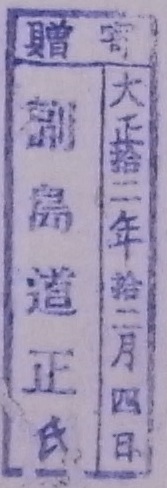 寄贈
大正拾二年拾二月四日
副島道正氏